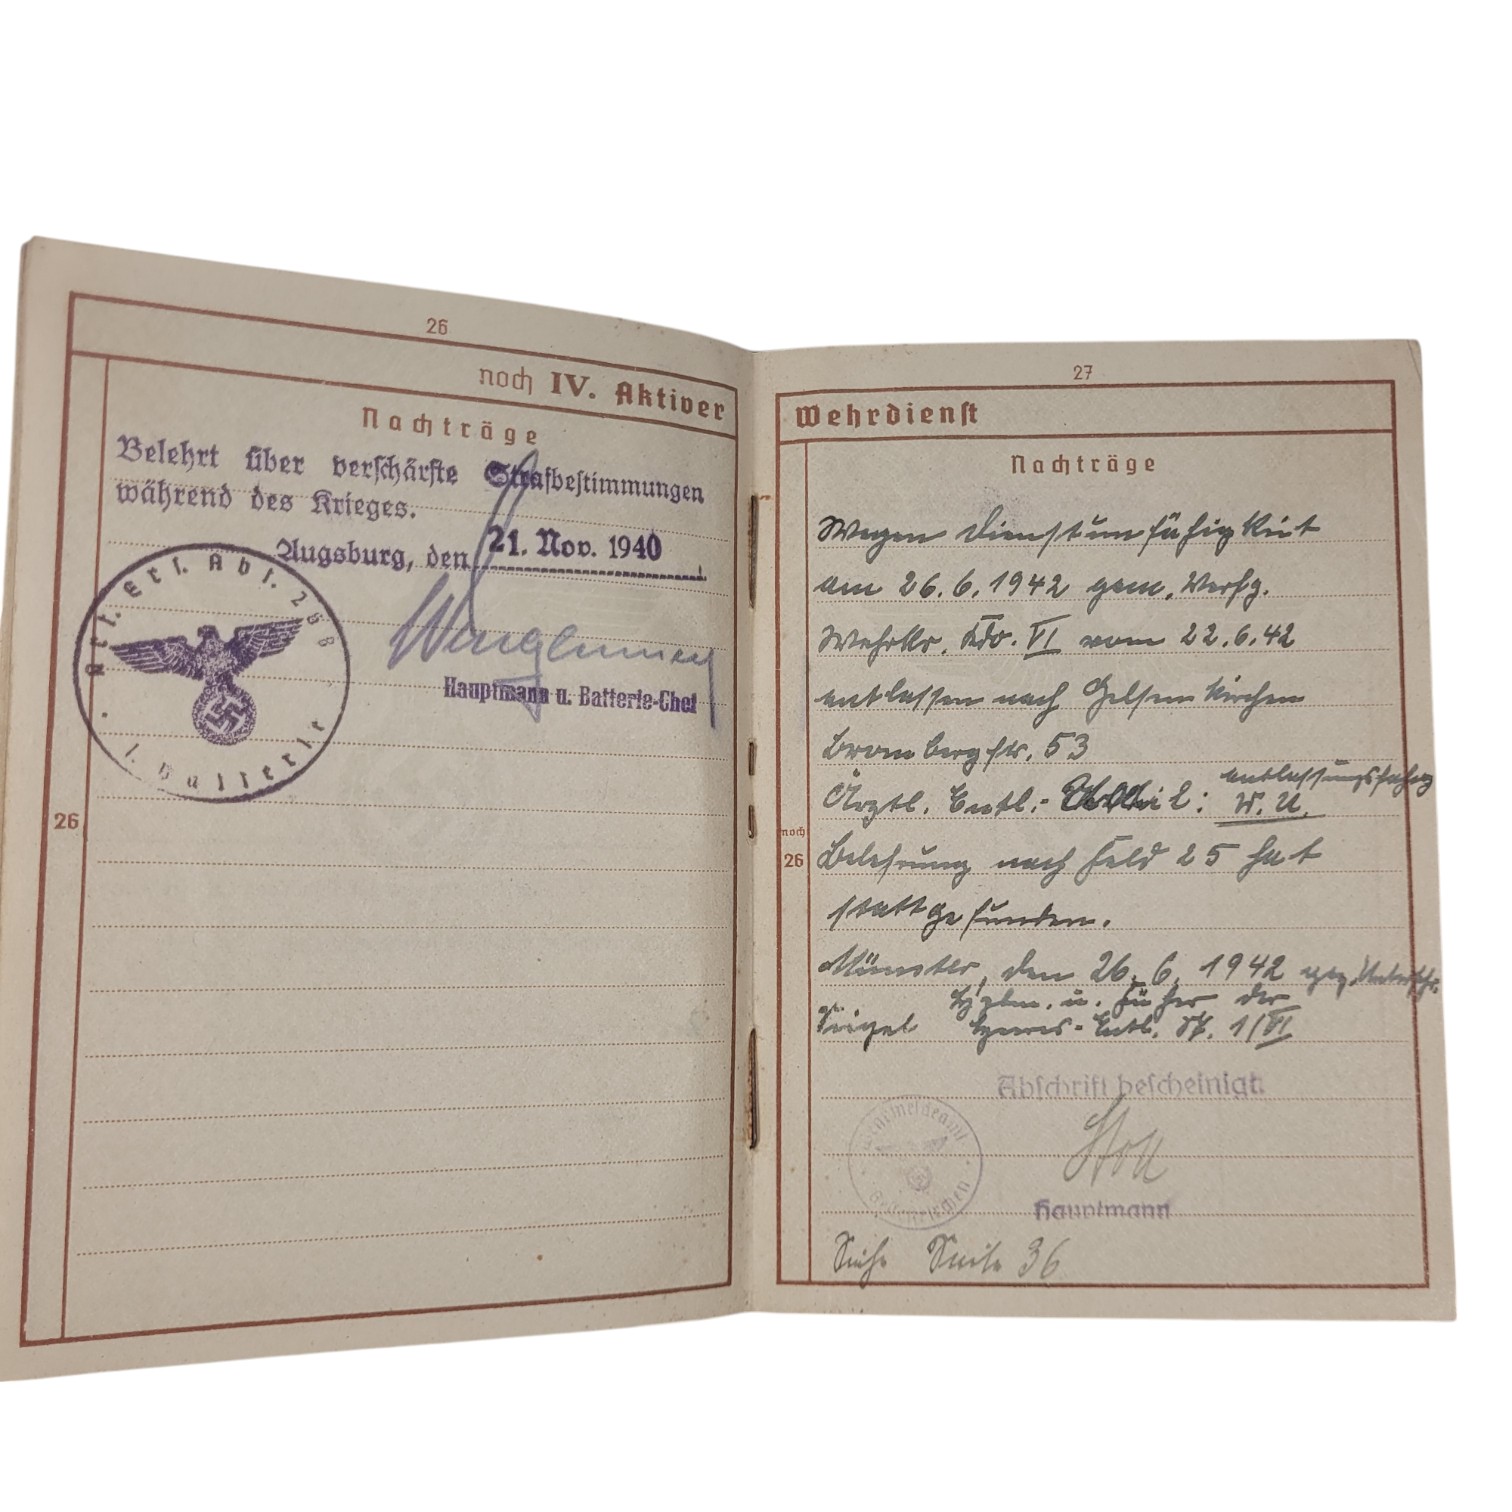 26
noch IV. Aktiver
Nachträge
Belehrt über verschärfte Strafbestimmungen
während des Krieges.
Augsburg, den 21. Nov. 1940
Hauptmann u. Batterie-Chef
Art. Ers. Abt.
1. Batterie
26
27
Wehrdienst
Nachträge
Wegen Dienstunfähigkeit
am 26.6.1942 gem. Verfg.
Wehrkr. Kdo. VI vom 22.6.42
entlassen nach Gelsenkirchen
Brombergstr. 53
entlassungsfähig
Ärztl. Entl.- : W. U.
noch
26
Belehrung nach Feld 25 hat
stattgefunden.
Münster, den 26.6.1942 gez. Unterschr.
u. Führer der
Siegel Heeres-Entl. St. 1/VI
Abschrift bescheinigt:
Wehrmeldeamt
Gelsenkirchen
Hauptmann
Siehe Seite 36